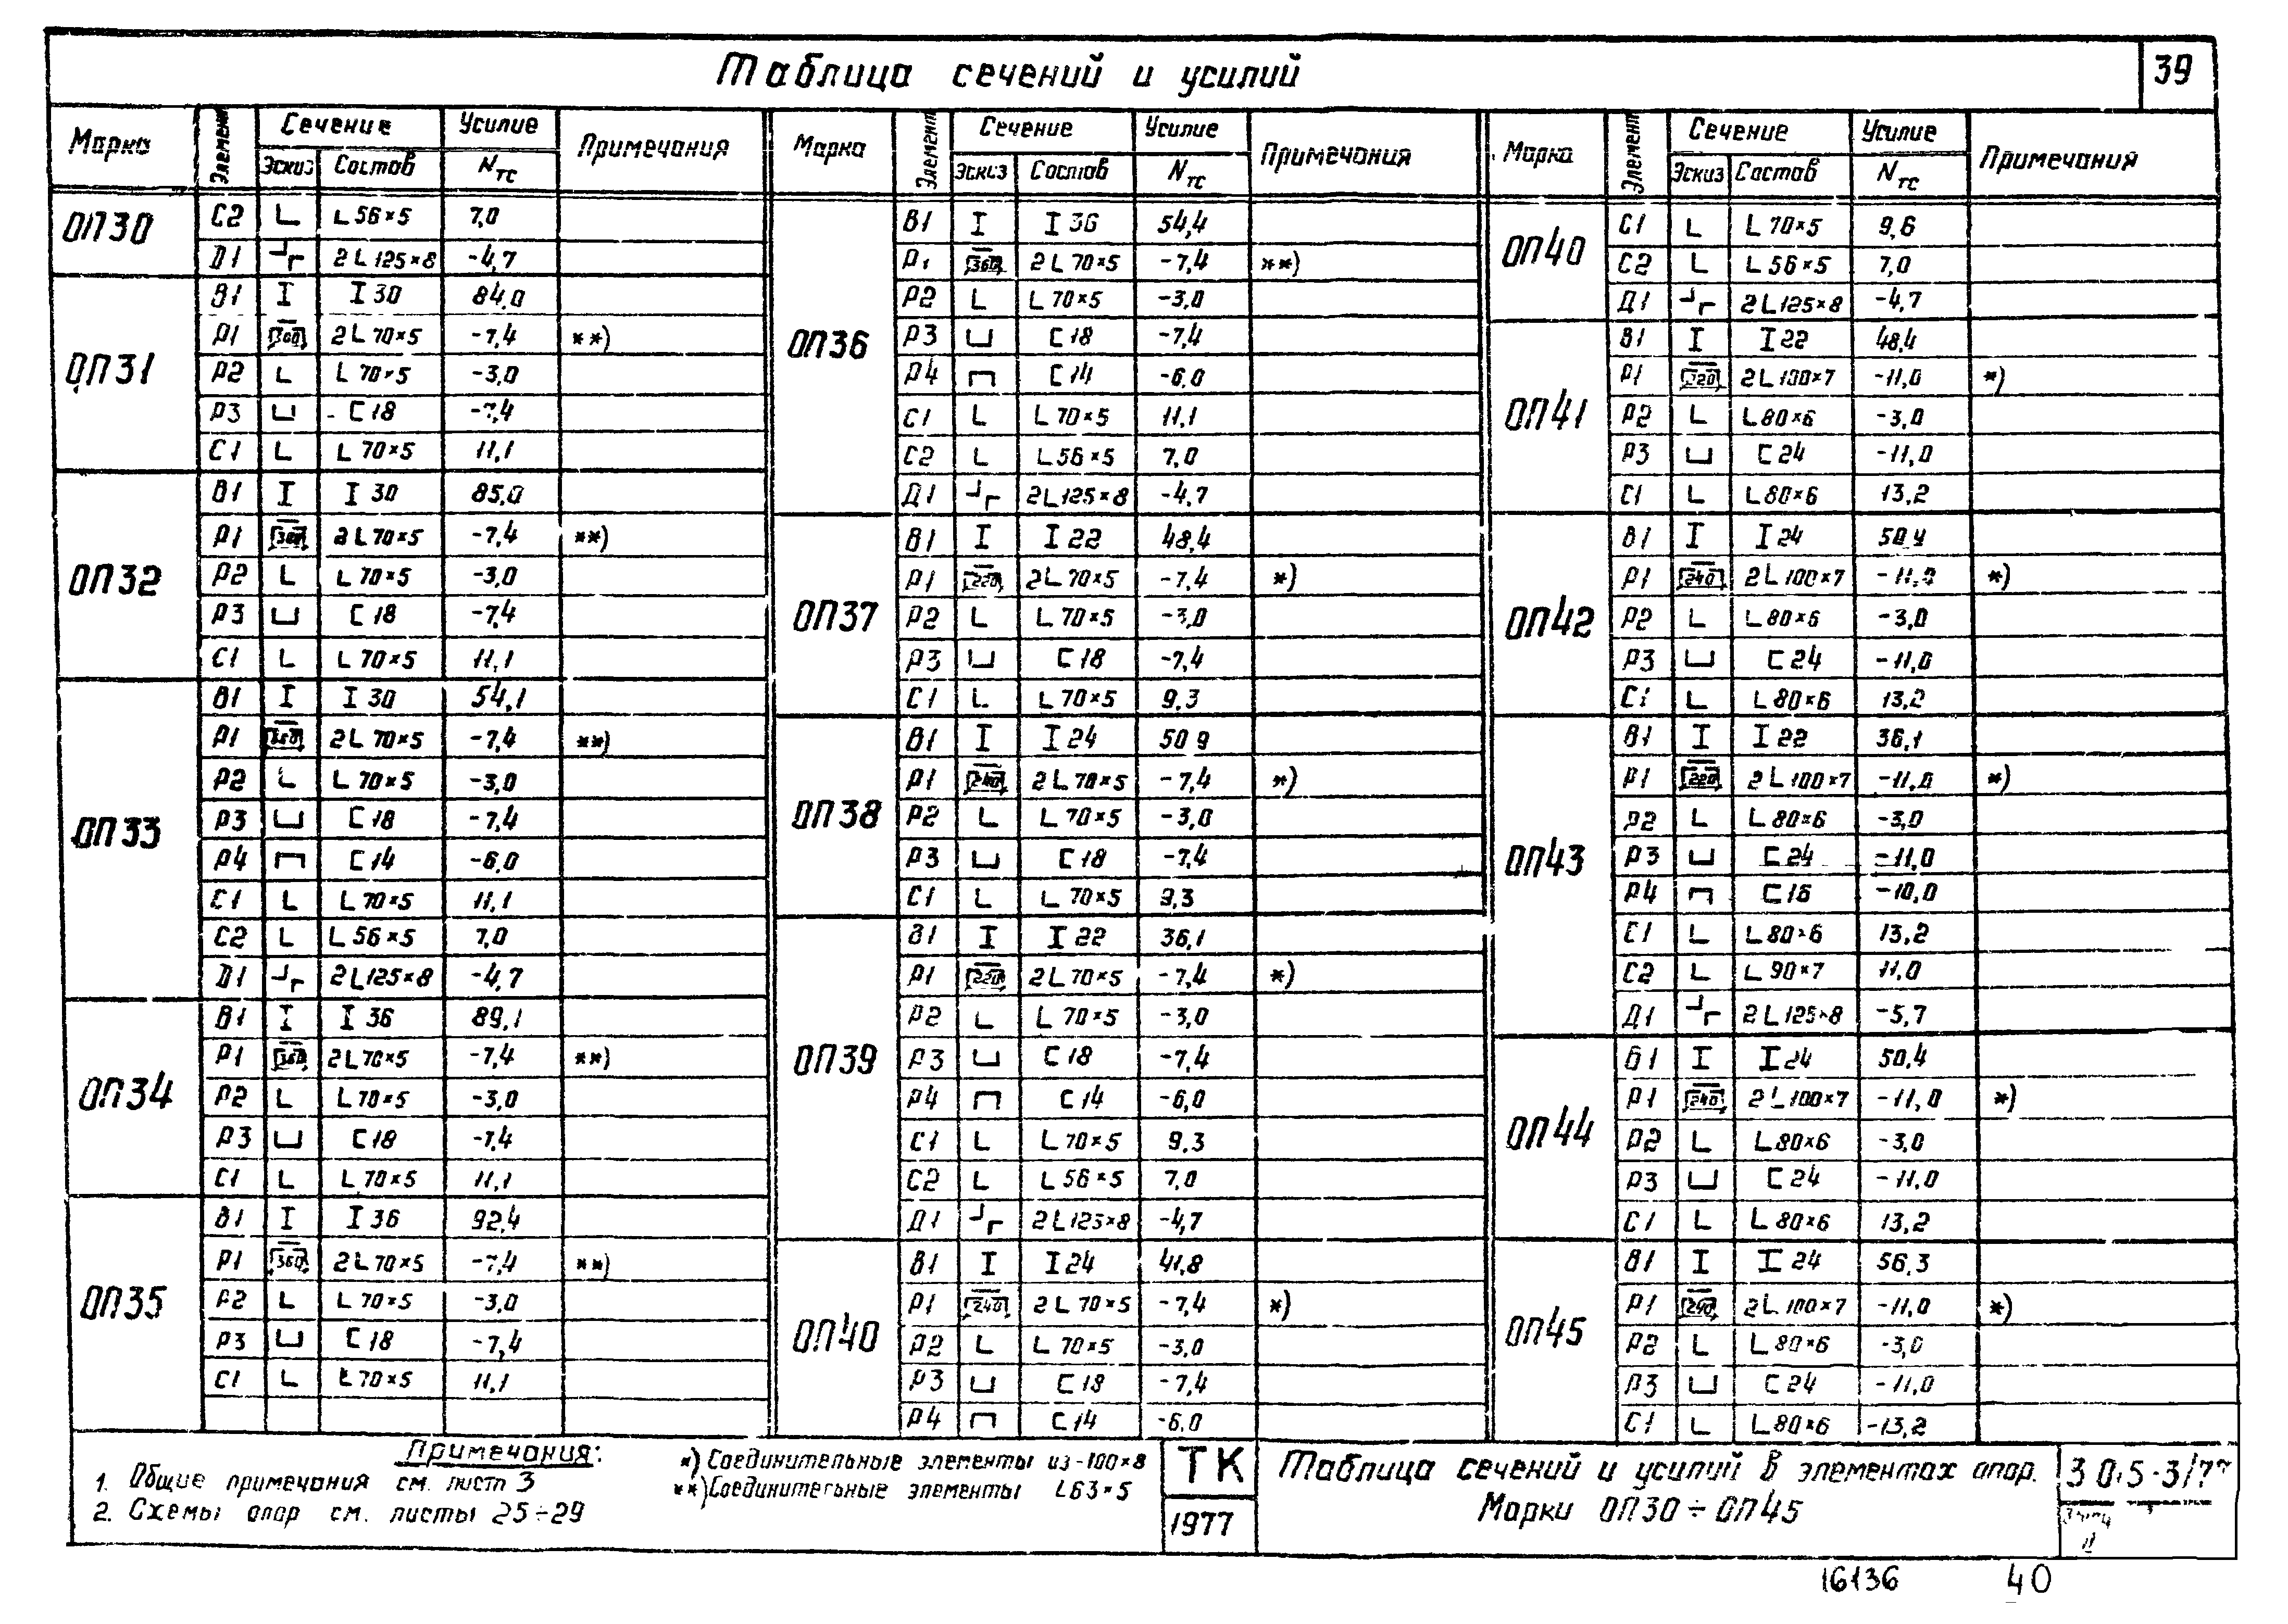 Таблица сечений и усилий
39
Марка Элемент Сечение Усилие Примечания
Эскиз Состав Nтс
ОП30
С2 L 56×5 7,0
Д1 2L125×8 -4,7
ОП31
В1 I 30 84,0
Р1 300 2L 70×5 -7,4 **)
Р2 L 70×5 -3,0
Р3 [ 18 -7,4
С1 L 70×5 11,1
ОП32
В1 I 30 85,0
Р1 300 2L70×5 -7,4 **)
Р2 L 70×5 -3,0
Р3 [ 18 -7,4
С1 L 70×5 11,1
ОП33
В1 I 30 54,1
Р1 2L 70×5 -7,4 **)
Р2 L 70×5 -3,0
Р3 [ 18 -7,4
Р4 [ 14 -6,0
С1 L 70×5 11,1
С2 L 56×5 7,0
Д1 2L125×8 -4,7
ОП34
В1 I 36 89,1
Р1 360 2L70×5 -7,4 **)
Р2 L 70×5 -3,0
Р3 [ 18 -7,4
С1 L 70×5 11,1
ОП35
В1 I 36 92,4
Р1 360 2L 70×5 -7,4 **)
Р2 L 70×5 -3,0
Р3 [ 18 -7,4
С1 L 70×5 11,1
Марка Элемент Сечение Усилие Примечания
Эскиз Состав Nтс
ОП36
В1 I 36 54,4
Р1 360 2L 70×5 -7,4 **)
Р2 L 70×5 -3,0
Р3 [ 18 -7,4
Р4 [ 14 -6,0
С1 L 70×5 11,1
С2 L 56×5 7,0
Д1 2L125×8 -4,7
ОП37
В1 I 22 48,4
Р1 220 2L 70×5 -7,4 *)
Р2 L 70×5 -3,0
Р3 [ 18 -7,4
С1 L 70×5 9,3
ОП38
В1 I 24 50 9
Р1 240 2L 70×5 -7,4 *)
Р2 L 70×5 -3,0
Р3 [ 18 -7,4
С1 L 70×5 9,3
ОП39
В1 I 22 36,1
Р1 220 2L 70×5 -7,4 *)
Р2 L 70×5 -3,0
Р3 [ 18 -7,4
Р4 [ 14 -6,0
С1 L 70×5 9,3
С2 L 56×5 7,0
Д1 2L125×8 -4,7
ОП40
В1 I 24 41,8
Р1 240 2L 70×5 -7,4 *)
Р2 L 70×5 -3,0
Р3 [ 18 -7,4
Р4 [ 14 -6,0
Марка Элемент Сечение Усилие Примечания
Эскиз Состав Nтс
ОП40
С1 L 70×5 9,6
С2 L 56×5 7,0
Д1 2L125×8 -4,7
ОП41
В1 I 22 48,4
Р1 220 2L 100×7 -11,0 *)
Р2 L80×6 -3,0
Р3 [ 24 -11,0
С1 L80×6 13,2
ОП42
В1 I 24 50,4
Р1 240 2L 100×7 -11,0 *)
Р2 L80×6 -3,0
Р3 [ 24 -11,0
С1 L80×6 13,2
ОП43
В1 I 22 36,1
Р1 220 2L 100×7 -11,0 *)
Р2 L80×6 -3,0
Р3 [ 24 -11,0
Р4 [ 16 -10,0
С1 L80×6 13,2
С2 L 90×7 11,0
Д1 2L125×8 -5,7
ОП44
В1 I 24 50,4
Р1 240 2L100×7 -11,0 *)
Р2 L80×6 -3,0
Р3 [ 24 -11,0
С1 L80×6 13,2
ОП45
В1 I 24 56,3
Р1 240 2L 100×7 -11,0 *)
Р2 L80×6 -3,0
Р3 [ 24 -11,0
С1 L80×6 -13,2
Примечания:
1. Общие примечания см. лист 3
2. Схемы опор см. листы 25÷29
*) Соединительные элементы из -100×8
**) Соединительные элементы L63×5
ТК
1977
Таблица сечений и усилий в элементах опор.
Марки ОП30÷ОП45
3 0.5-3/7
II
16136 40